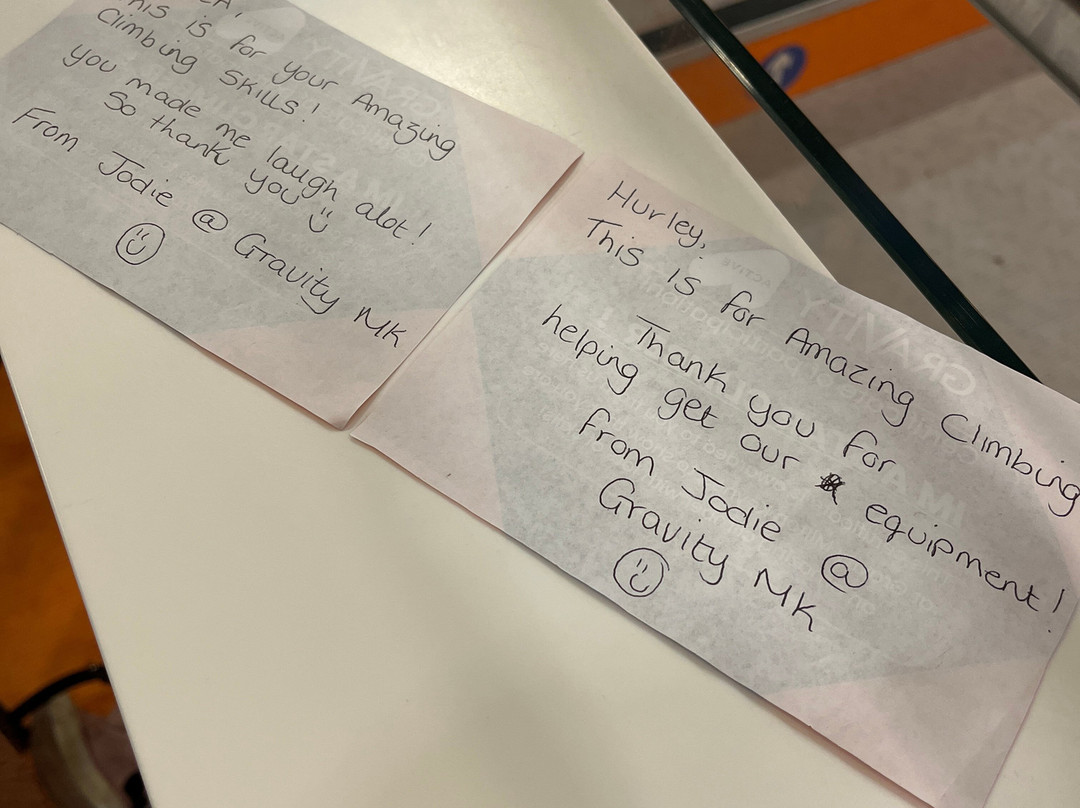 This is for your Amazing
Climbing Skills!
you made me laugh alot!
So thank you
From Jodie @ Gravity MK
Hurley,
This is for Amazing Climbing
Thank you for
helping get our equipment!
from Jodie @
Gravity MK
GRAVITY